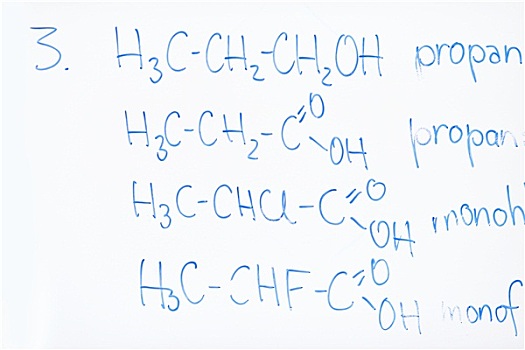 3. H₃C-CH₂-CH₂OH propan
H₃C-CH₂-C=O-OH propan
H₃C-CHCl-C=O-OH monoh
H₃C-CHF-C=O-OH monof